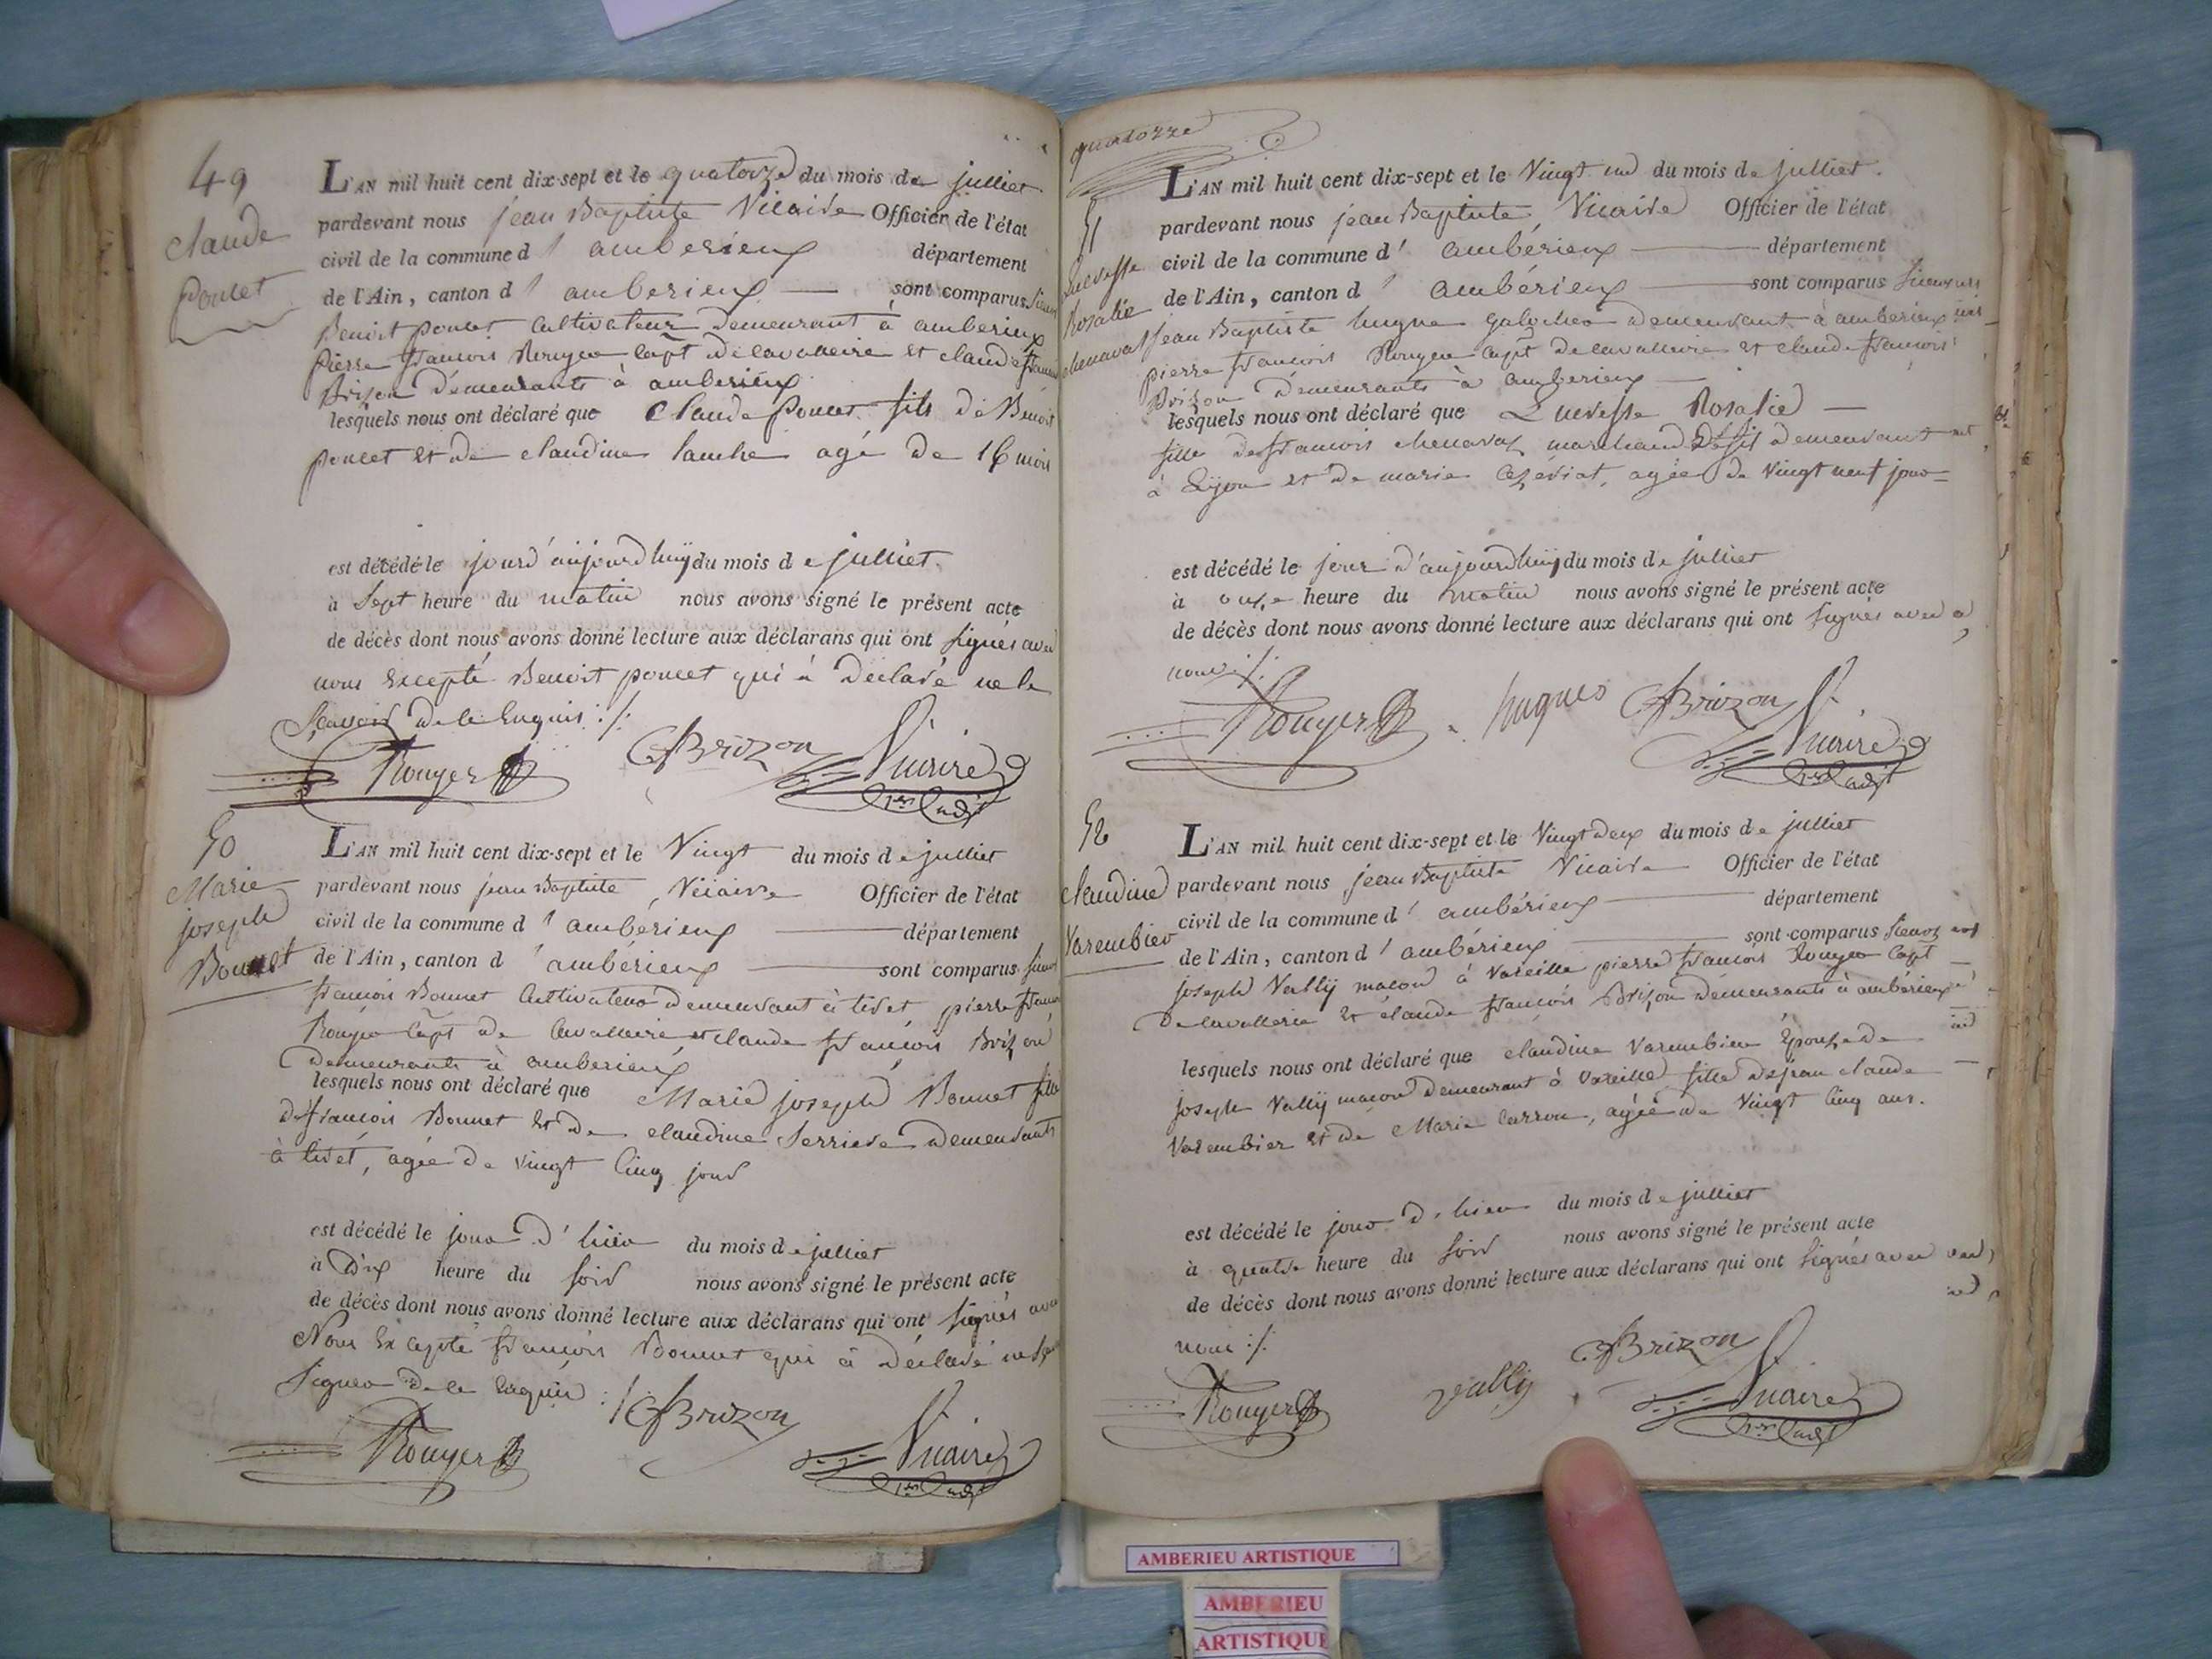 49
Claude
Poncet
L'AN mil huit cent dix-sept et le quatorze du mois de julliet
pardevant nous jean Baptiste Vicaire Officier de l'état
civil de la commune d'ambérieux département
de l'Ain, canton d'ambérieux sont comparus sieurs
Benoit poncet Cultivateur demeurant à amberieux
pierre francois Rouyer Capt de cavallerie et claude françois
Brison demeurants à amberieux
lesquels nous ont déclaré que Claude Poncet fils de Benoit
poncet et de claudine agé de 16 mois
est décédé le jour d'aujourd'huy du mois de julliet
à sept heure du matin nous avons signé le présent acte
de décès dont nous avons donné lecture aux déclarans qui ont signés avec
nous excepté Benoit poncet qui à déclaré ne le
sçavoir de ce enquis ./.
Rouyer CfBrizon Vicaire
50
Marie
joseph
Bonnet
L'AN mil huit cent dix-sept et le Vingt du mois de julliet
pardevant nous jean Baptiste Vicaire Officier de l'état
civil de la commune d'ambérieux département
de l'Ain, canton d'ambérieux sont comparus sieurs
francois Bonnet Cultivateur demeurant à tiret, pierre francois
Rouyer Capt de Cavallerie et claude françois Brizon
demeurants à amberieux
lesquels nous ont déclaré que Marie joseph Bonnet fille
de francois Bonnet et de claudine Serriere demeurants
à tiret, agée de vingt cinq jour
est décédé le jour d'hier du mois de julliet
à dix heure du soir nous avons signé le présent acte
de décès dont nous avons donné lecture aux déclarans qui ont signés avec
Nous Excepté francois Bonnet qui à déclaré ne
signer de ce enquis ./.
CfBrizon
Rouyer Vicaire
quatorze
51
Rosalie
chenaval
L'AN mil huit cent dix-sept et le Vingt un du mois de julliet.
pardevant nous jean Baptiste Vicaire Officier de l'état
civil de la commune d'ambérieux département
de l'Ain, canton d'ambérieux sont comparus sieurs
jean Baptiste hugues demeurant à ambérieux
pierre francois Rouyer Capt de cavallerie et claude francois
Brizon demeurants à amberieux
lesquels nous ont déclaré que Rosalie
fille de francois chenaval marchand demeurant
à Lyon et de marie agée de vingt neuf jour
est décédé le jour d'aujourd'huy du mois de julliet
à onze heure du matin nous avons signé le présent acte
de décès dont nous avons donné lecture aux déclarans qui ont signés avec
nous ./.
Rouyer hugues CfBrizon
Vicaire
52
Claudine
Varembier
L'AN mil huit cent dix-sept et le Vingt deux du mois de julliet
pardevant nous jean Baptiste Vicaire Officier de l'état
civil de la commune d'ambérieux département
de l'Ain, canton d'ambérieux sont comparus sieurs
joseph Vally macon à Vareille pierre francois Rouyer Capt
de cavallerie et claude françois Brizon demeurants à ambérieux
lesquels nous ont déclaré que claudine Varembier Epouse de
joseph Vally macon demeurant à Vareille fille de jean claude
Varembier et de Marie Carron, agée de Vingt Cinq ans.
est décédé le jour d'hier du mois de julliet
à quatre heure du soir nous avons signé le présent acte
de décès dont nous avons donné lecture aux déclarans qui ont signés avec
nous ./.
CfBrizon
Rouyer Vally Vicaire
AMBERIEU ARTISTIQUE
AMBERIEU
ARTISTIQUE